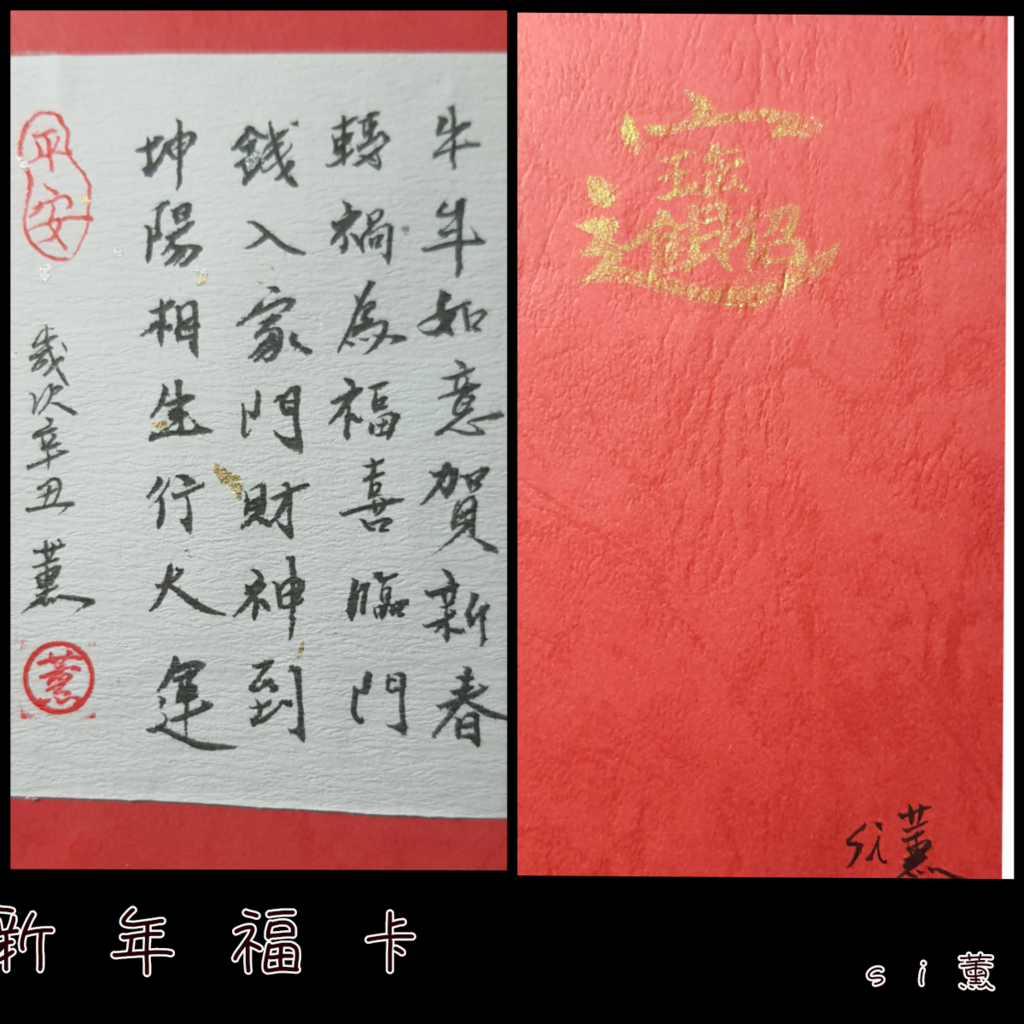 牛年如意賀新春
轉禍為福喜臨門
錢入家門財神到
坤陽相生行大運
平安
歲次辛丑 薰
薰
招財進寶
si薰
新年福卡
si薰